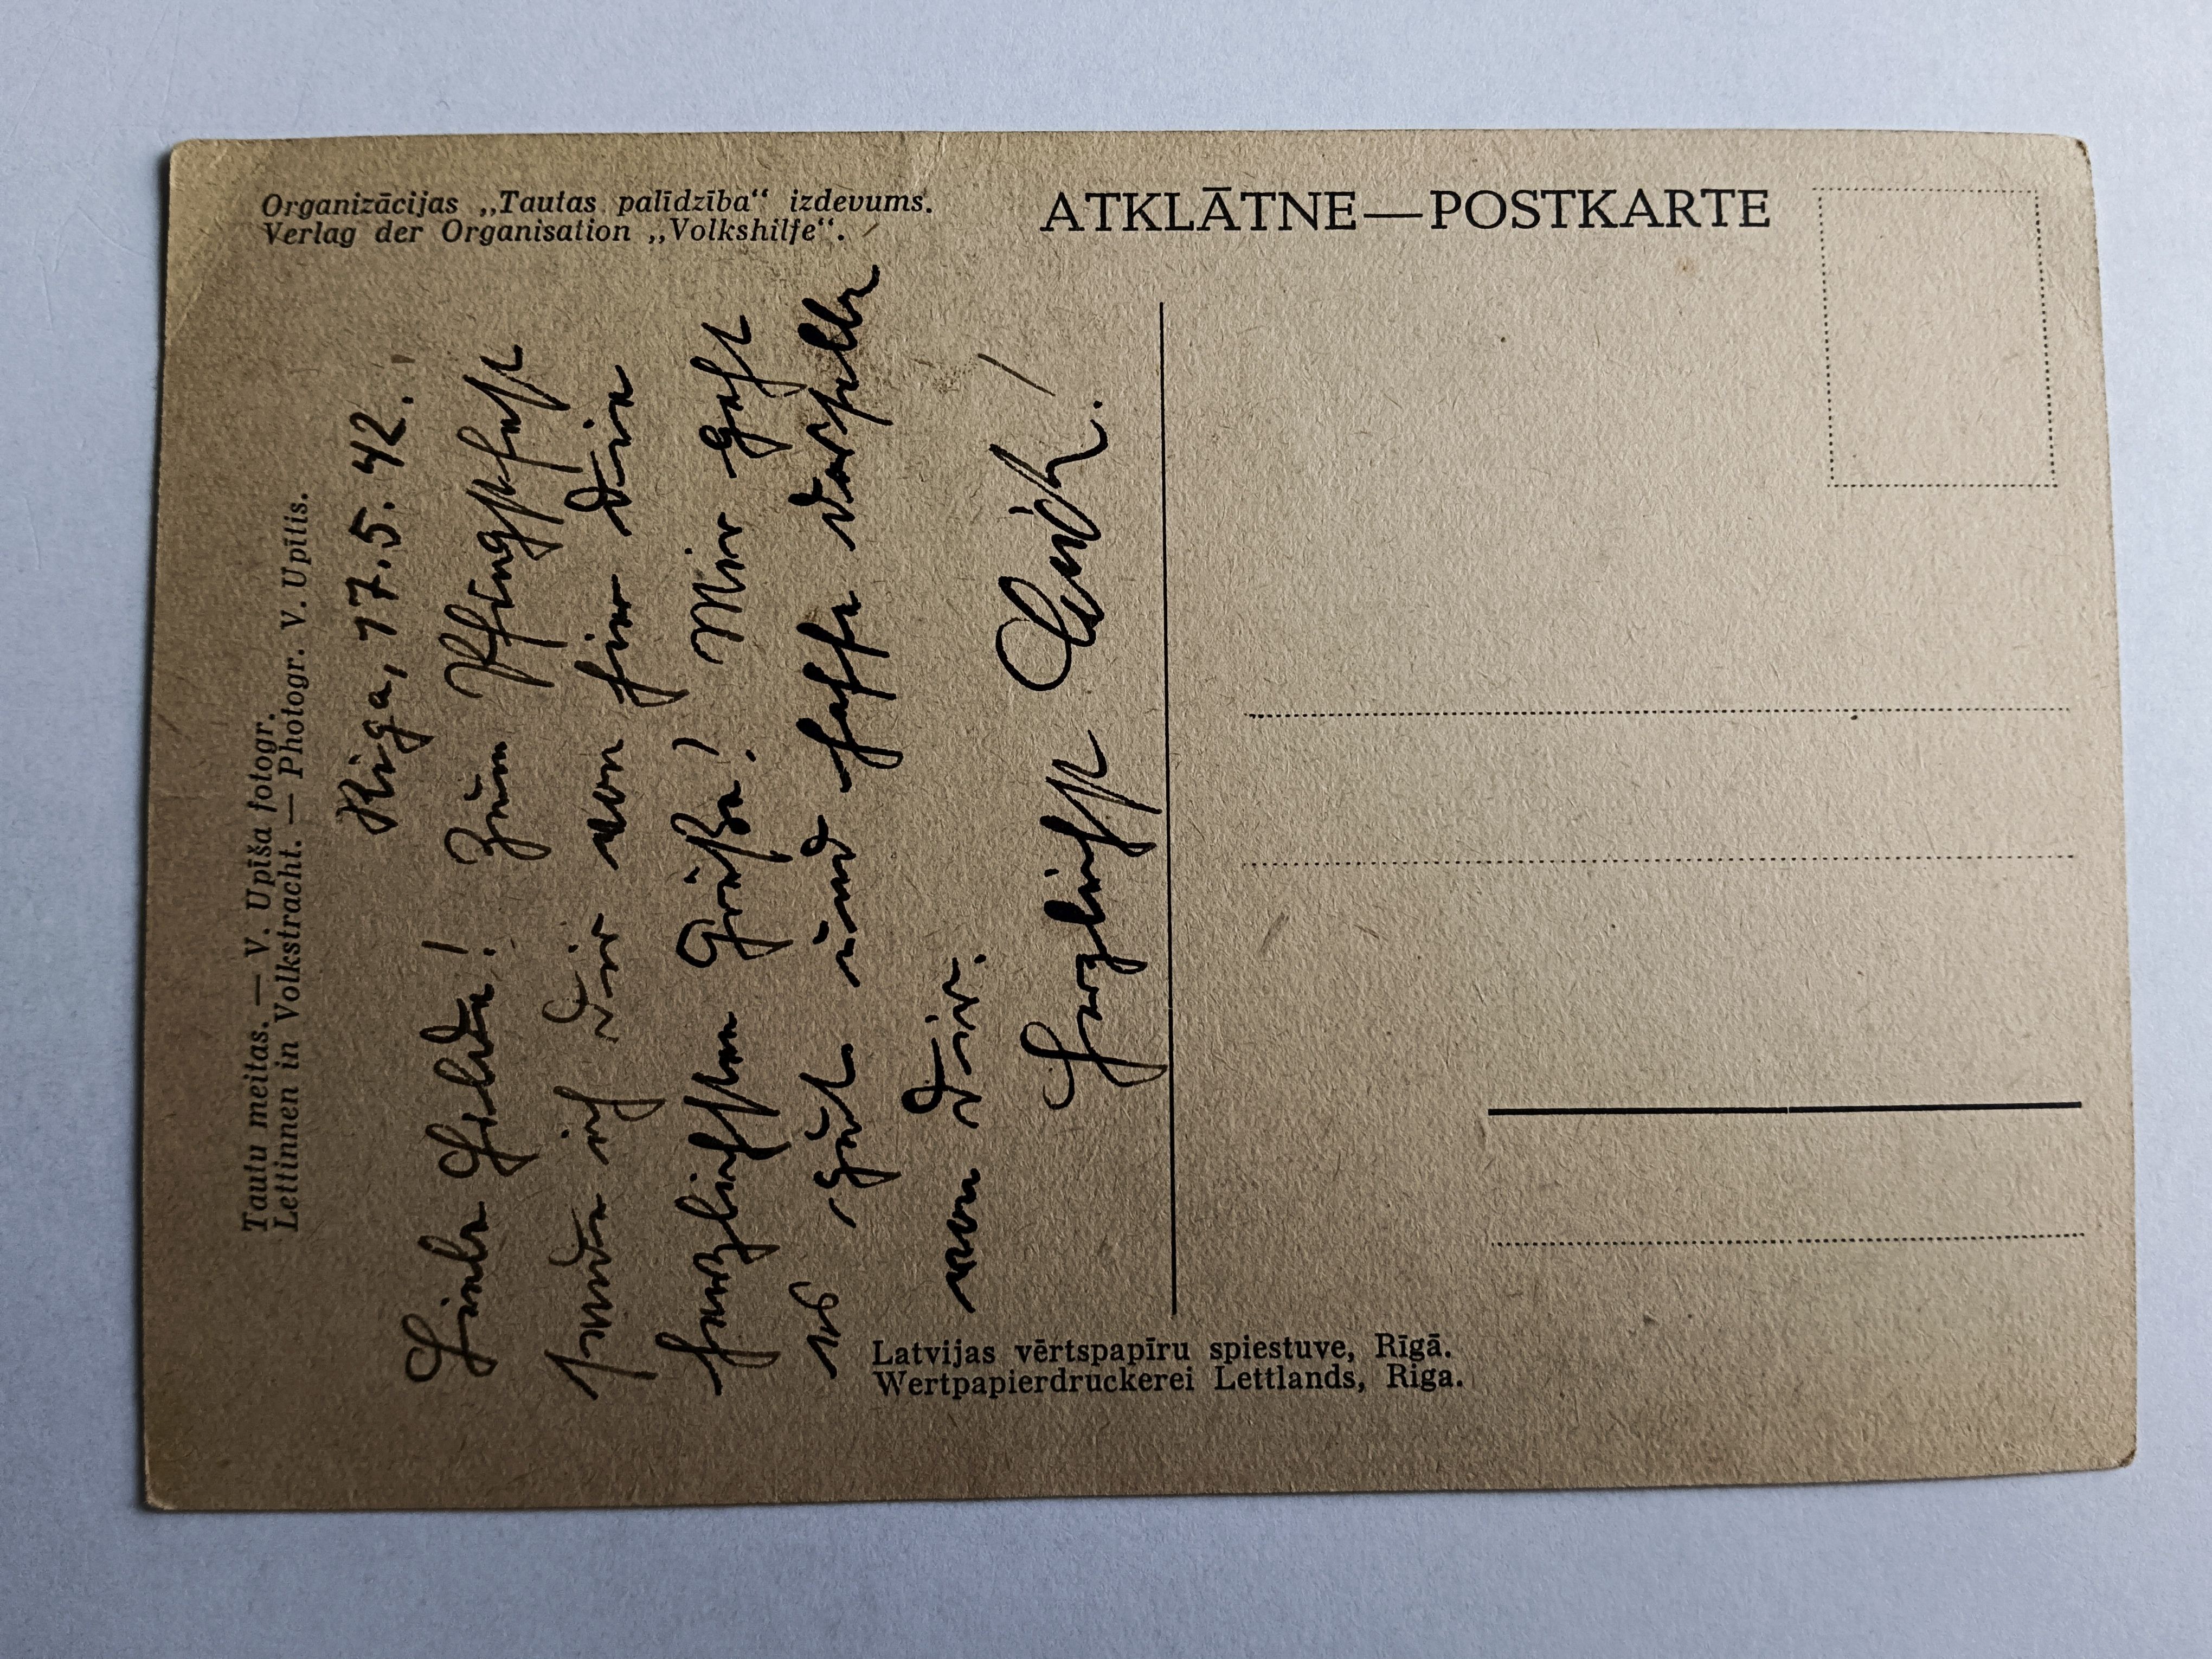 Organizācijas „Tautas palīdzība“ izdevums.
Verlag der Organisation „Volkshilfe“.
ATKLĀTNE—POSTKARTE
Tautu meitas. — V. Upīša fotogr.
Lettinnen in Volkstracht. — Photogr. V. Upitis.
Riga, 17.5.42.
Liebe Hilde! Zum Pfingstfest
sende ich Dir von hier die
herzlichsten Grüße! Mir geht
es gut und hoffe dasselbe
von Dir.
Herzlichst
Latvijas vērtspapīru spiestuve, Rīgā.
Wertpapierdruckerei Lettlands, Riga.